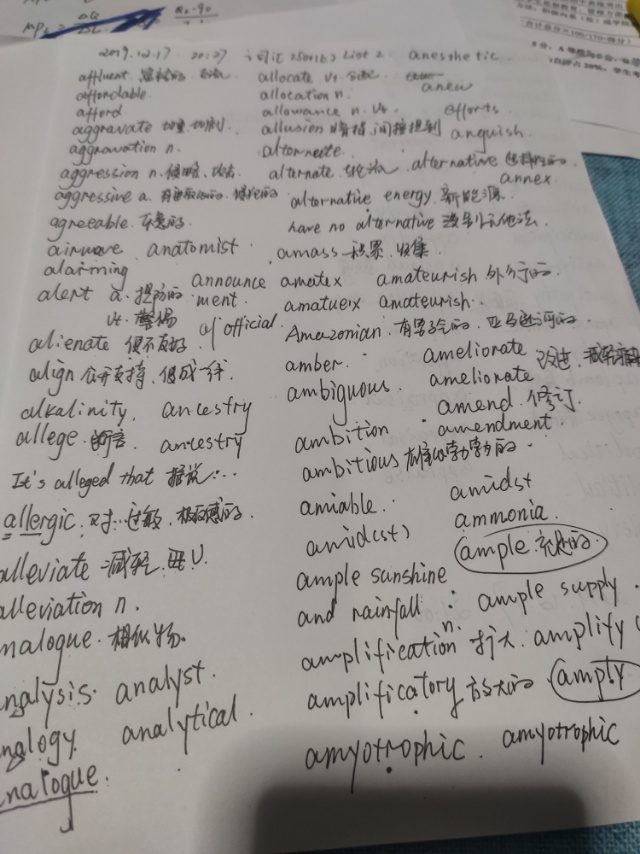 2019.12.17 20:27 词汇 List 2. anesthetic
affluent. 富裕的 allocate vt. 分配 anew
affordable. allocation n.
afford. allowance n. vt. efforts
aggravate 加重 加剧. allusion 暗指, 间接提到 anguish.
aggravation n.
aggression n. 侵略、攻击 alternate. 轮流 alternative 选择性的.
aggressive a. alternative energy 新能源. annex.
agreeable. 乐意的 have no alternative 没别的法
airwave anatomist. amass 积累. 收集
alarming
alert a. 提防的 announcement. amatex amateurish 外行的.
vt. 警惕 of official amatuerx amateurish.
alienate 使不友好. Amazonian. 有男子气的. 亚马逊河的.
align 公开支持、使成一线. amber. ameliorate 改进.
ambiguous. ameliorate
alkalinity. ancestry amend. 修订.
allege. 断言. ancestry ambition amendment.
It's alleged that 据说... ambitious 雄心勃勃的.
allergic. 对...过敏. 极反感的. amiable. amidst
alleviate 减轻. amid(st) ammonia.
alleviation n. ample sunshine ample 充足的.
nalogue. 相似物. and rainfall. ample supply.
nalysis. analyst. amplification n. 扩大. amplify
nalogy. analytical. amplificatory 放大的 amply
nalogue. amyotrophic. amyotrophic